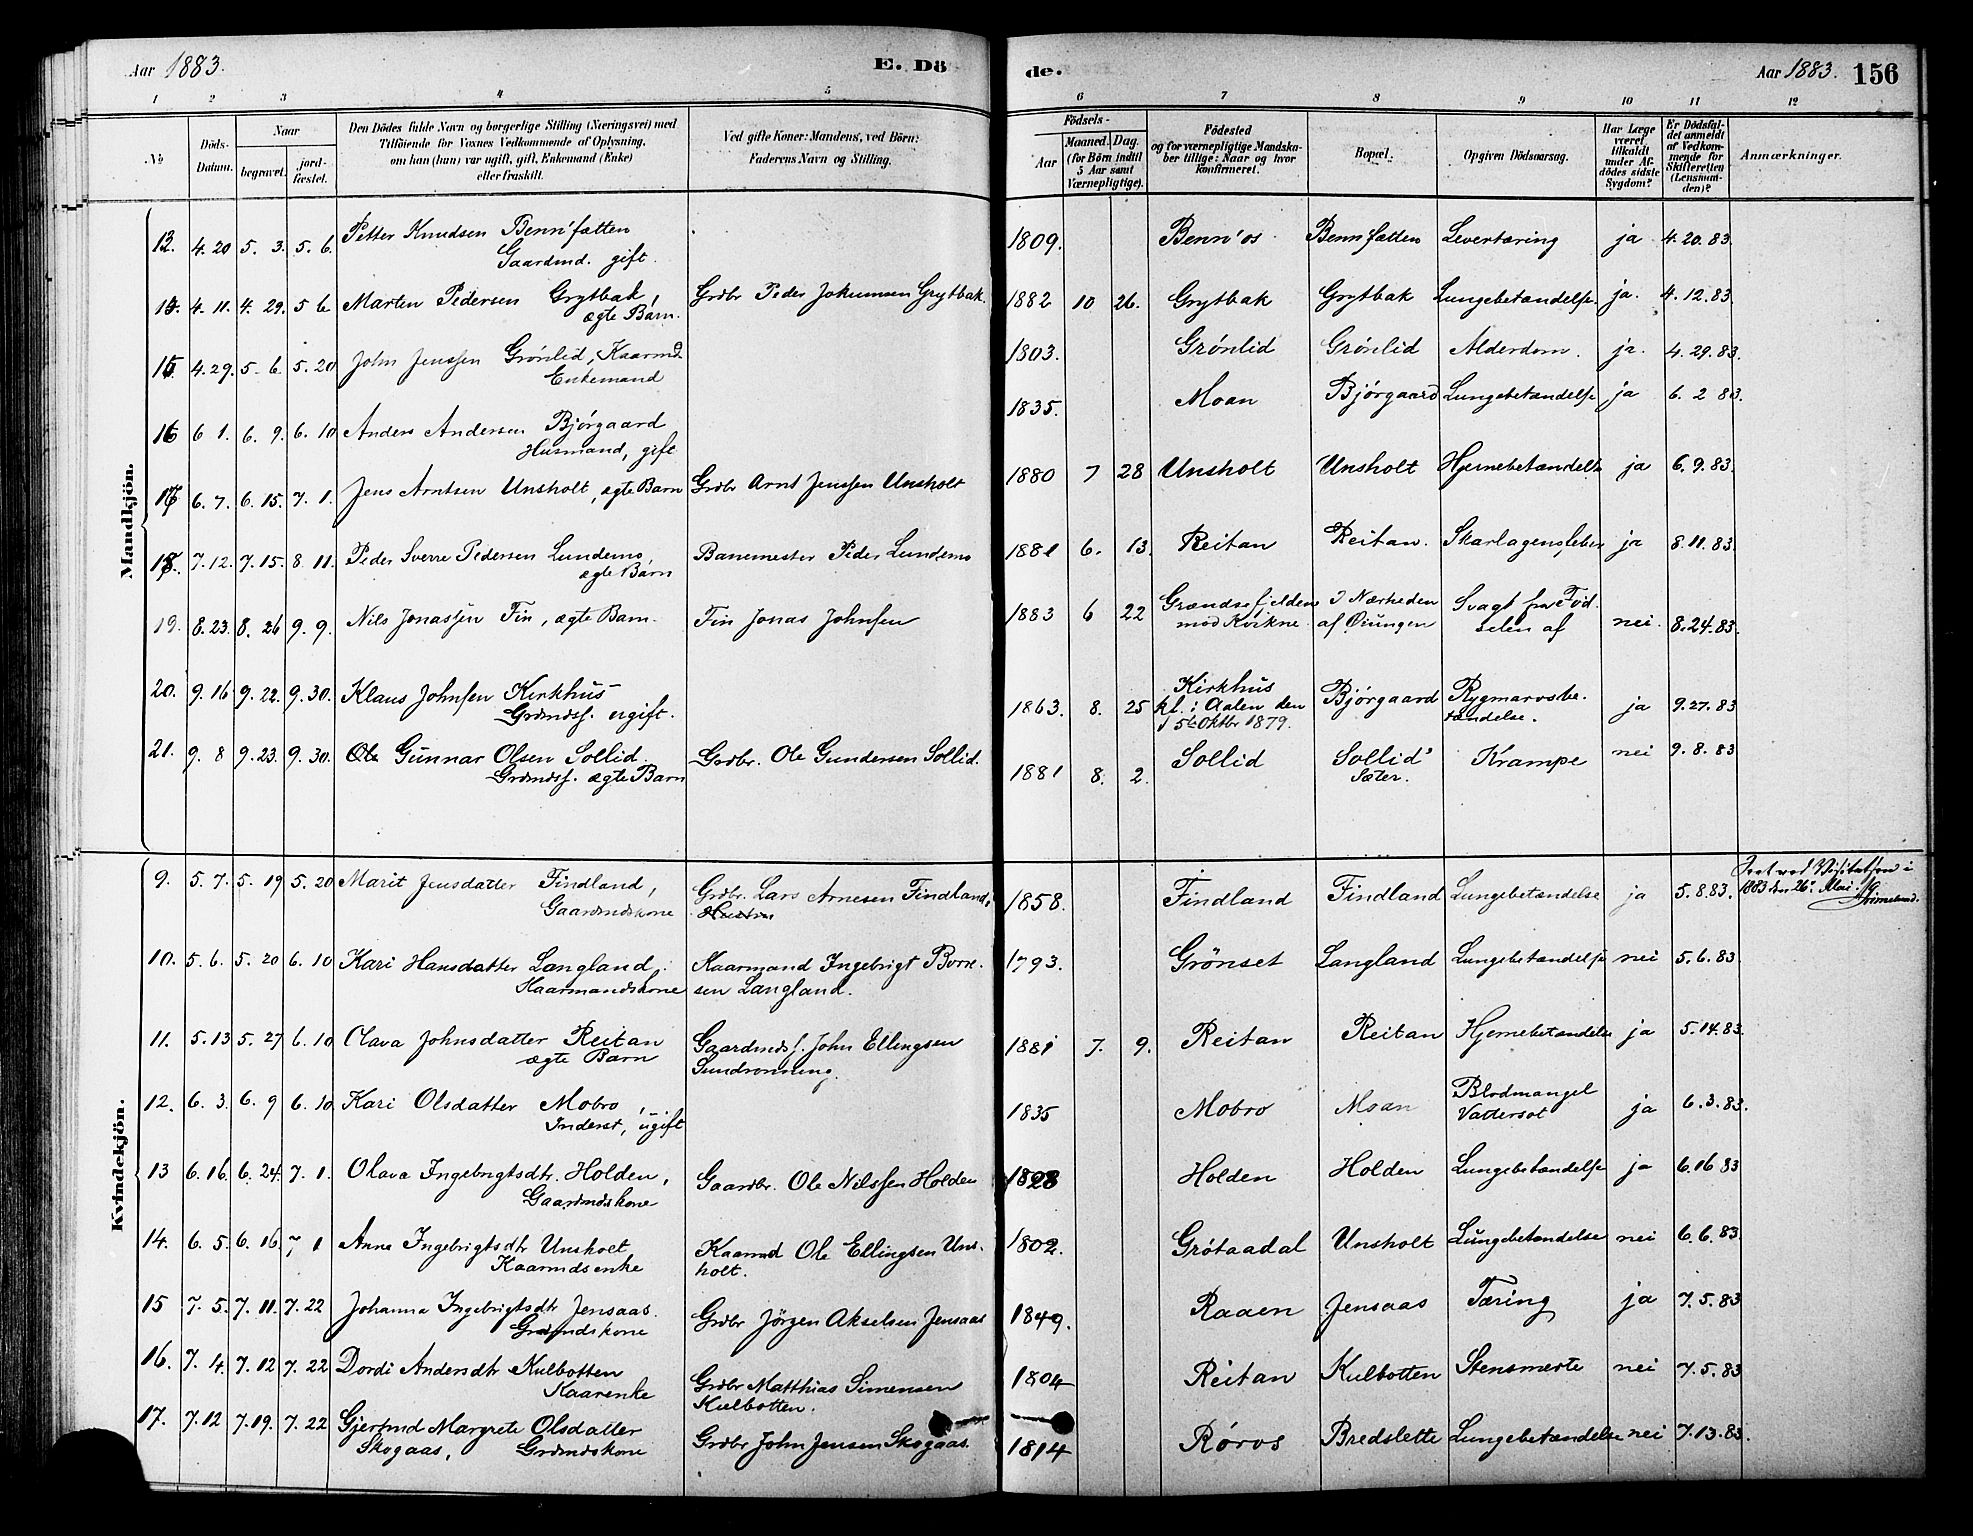 Aar 1883.
E. Dö
de.
Aar 1883. 156
1 2 3 4 5 6 7 8 9 10 11 12
No
Döds-Datum.
Naar
begravet.
jordfæstet.
Den Dödes fulde Navn og borgerlige Stilling (Næringsvei) med
Tilföiende for Voxnes Vedkommende af Oplysning,
om han (hun) var ugift, gift, Enkemand (Enke)
eller fraskilt.
Ved gifte Koner: Mandens, ved Börn:
Faderens Navn og Stilling.
Födsels-
Aar
Maaned. Dag.
(for Börn indtil
5 Aar samt
Værnepligtige).
Födested
og for værnepligtige Mandska-
ber tillige: Naar og hvor
konfirmeret.
Bopæl.
Opgiven Dödsaarsag.
Har Læge
været
tilkaldt
under Af-
dödes sidste
Sygdom?
Er Dödsfal-
det anmeldt
af Vedkom-
mende for
Skifteretten
(Lensman-
den)?
Anmærkninger.
Mandkjön.
13. 4.20 5.3. 5.6. Petter Knudsen Bennfætten 1809. Benn'os Bennfætten Levertæring ja 4.20.83.
Gaardmd. gift.
14. 4.11. 4.29. 5 6 Marten Pedersen Grytbak, Grdbr Peder Jokumsen Grytbak. 1882 10 26. Grytbak Grytbak Lungebetændelse ja. 4.12.83.
ægte Barn.
15. 4.29. 5 6. 5.20 John Jenssen Grönlid, Kaarmd. 1803. Grönlid Grönlid Alderdom. ja. 4.29.83.
Enkemand
16 6 1. 6. 9. 6.10 Anders Andersen Bjórgaard 1835. Moan Bjórgaard Lungebetændelse ja 6. 2 83.
Husmand, gift
17 6.7. 6.15. 7.1. Jens Arntsen Unsholt, ægte Barn Grdbr Arnt Jenssen Unsholt 1880 7 28 Unsholt Unsholt Hjernebetændelse ja 6.9.83.
18. 7.12. 7.15. 8 11. Peder Sverre Pedersen Lundemo, Banemester Peder Lundemo 1881 6. 13. Reitan Reitan. Skarlagensfeber ja 8.11.83.
ægte Barn
19. 8.23. 8.26 9.9. Nils Jonassen Fin, ægte Barn. Fin Jonas Johnsen 1883 6 22 Grændsefjeldene I Nærheden Svagt fra Föd
mod Kvikne af Öiungen selen af nei. 8.24.83.
20. 9.16 9.22. 9.30. Klaus Johnsen Kirkhus 1863. 8. 25 Kirkhus Bjórgaard Rygmarvsbe- ja 9.27.83
Grdmdss. ugift. kf. i Aalen den tændelse.
5te Oktbr 1879.
21. 9. 8 9.23. 9.30. Ole Gunnar Olsen Sollid Grdbr. Ole Gundersen Sollid. 1881 8. 2. Sollid Sollid Krampe nei 9.8.83
Grdmdss. ægte Barn Sæter.
Kvindekjön.
9. 5.7. 5.19 5.20 Marit Jensdatter Findland, Grdbr. Lars Arnesen Findland, 1858. Findland Findland Lungebetændelse ja 5.8.83.
Gaardmdskone
Seet ved Visitatsen i
1883 den 26. Mai.
10. 5.6. 5.20 6.10 Kari Hansdatter Langland, Kaarmand Ingebrigt 1793. Grönset Langland Lungebetændelse nei 5.6.83.
Kaarmandskone sen Langland.
11. 5.13 5.27 6.10 Olava Johnsdatter Reitan Gaardmdss. John Ellingsen 1881 7. 9. Reitan Reitan Hjernebetændelse ja 5.14.83.
ægte Barn
12. 6.3. 6.9 6.10 Kari Olsdatter Mobro, 1835 Mobro Moan Blodmangel ja 6.3.83.
Inderst, ugift Vattersot
13 6.16. 6.24. 7.1. Olava Ingebrigtsdtr. Holden, Gaardbr. Ole Nilssen Holden 1828 Holden Holden Lungebetændelse ja 6.16 83
Gaardmdskone
14. 6.5. 6.16. 7 1 Anna Ingebrigtsdtr Unsholt Kaarmd Ole Ellingsen Uns- 1802. Grötaadal Unsholt Lungebetændelse nei 6.6.83.
Kaarmdsenke holt.
15 7.5. 7.11. 7.22 Johanna Ingebrigtsdtr Jensaas. Grdbr Jörgen Akselsen Jensaas 1849. Raaen Jensaas Tæring ja 7.5.83
Grdmdskone
16. 7.4. 7.12 7.22 Dordi Andersdtr Kulbotten Grdbr Matthias Simensen 1804 Reitan Kulbotten Stensmerte nei 7.5.83
Kaarenke Kulbotten.
17. 7.12 7.19. 7.22 Gjertrud Margrete Olsdatter Grdbr John Jensen Skogaas. 1814 Röros Bredslette Lungebetændelse nei 7.13.83.
Skogaas, Grdmdskone